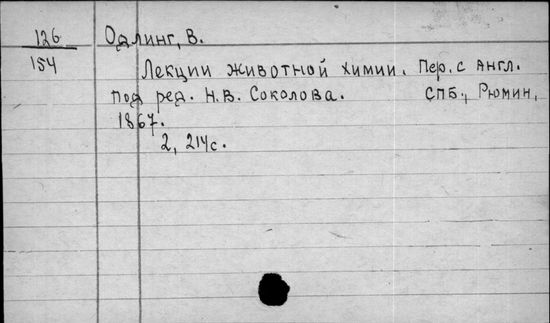 126
154
Одлинг, В.
Лекции животной химии. Пер. с англ.
под ред. Н.В. Соколова. СПБ., Рюмин,
1867.
2, 214с.